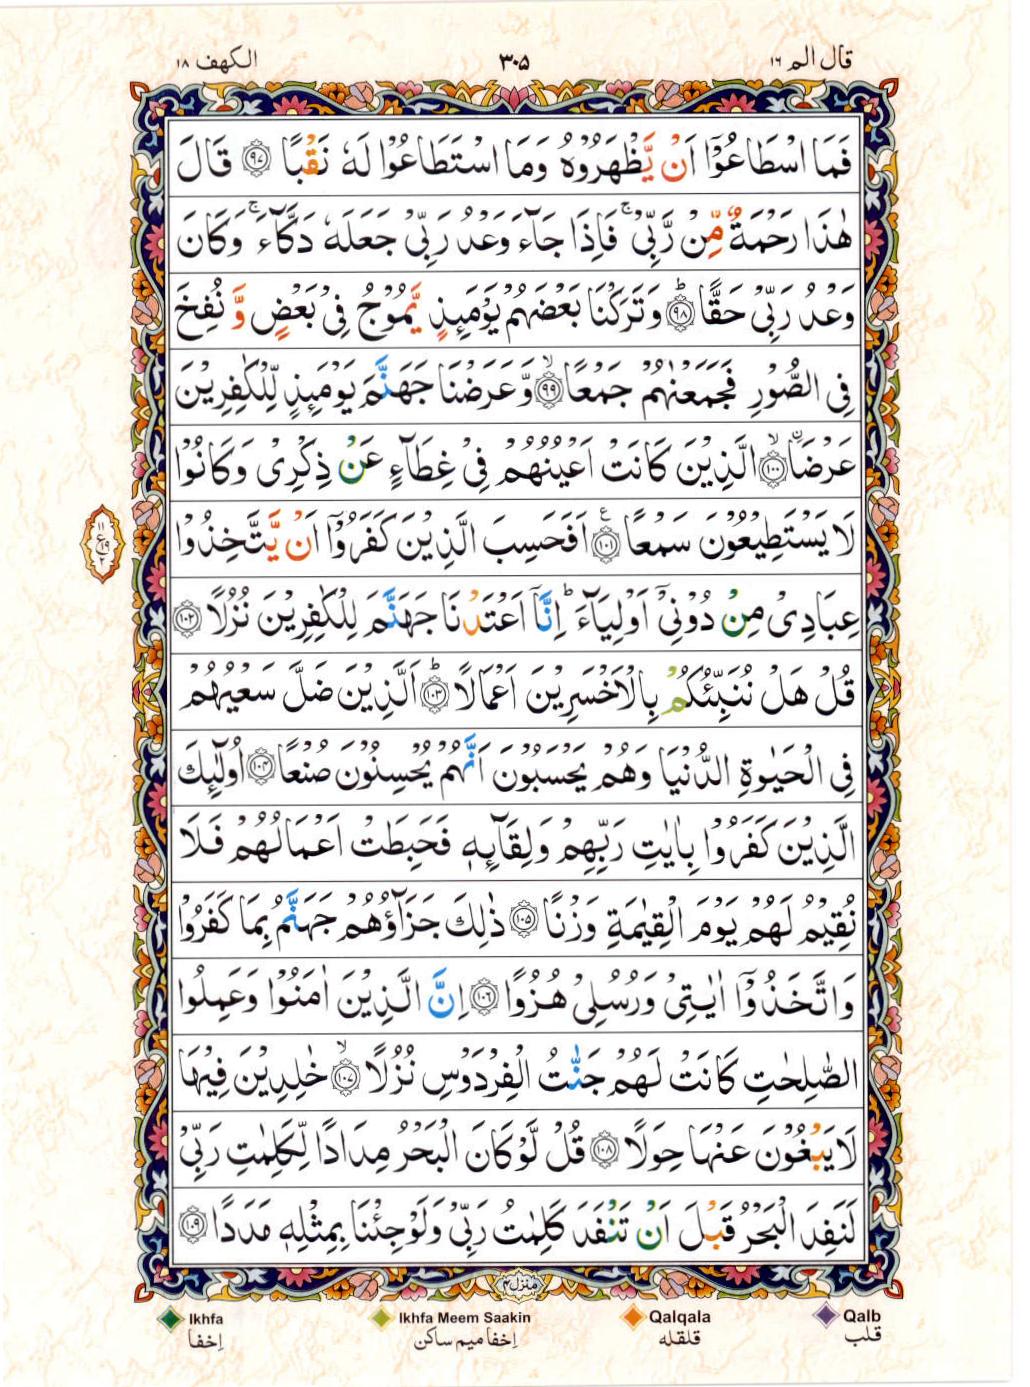 قال الم ١٦ ٣٠٥ الكهف ١٨
فَمَا اسْطَاعُوْۤا اَنْ يَّظْهَرُوْهُ وَمَا اسْتَطَاعُوْا لَهٗ نَقْبًا ﴿۹۷﴾ قَالَ
هٰذَا رَحْمَةٌ مِّنْ رَّبِّيْ ۚ فَاِذَا جَآءَ وَعْدُ رَبِّيْ جَعَلَهٗ دَكَّآءَ ۚ وَكَانَ
وَعْدُ رَبِّيْ حَقًّا ؕ ﴿۹۸﴾ وَتَرَكْنَا بَعْضَهُمْ يَوْمَئِذٍ يَّمُوْجُ فِيْ بَعْضٍ وَّ نُفِخَ
فِى الصُّوْرِ فَجَمَعْنٰهُمْ جَمْعًا ۙ ﴿۹۹﴾ وَّعَرَضْنَا جَهَنَّمَ يَوْمَئِذٍ لِّلْكٰفِرِيْنَ
عَرْضَا ۙ ﴿۱۰۰﴾ الَّذِيْنَ كَانَتْ اَعْيُنُهُمْ فِيْ غِطَآءٍ عَنْ ذِكْرِيْ وَكَانُوْا
لَا يَسْتَطِيْعُوْنَ سَمْعًا ﴿۱۰۱﴾ اَفَحَسِبَ الَّذِيْنَ كَفَرُوْۤا اَنْ يَّتَّخِذُوْا
ع ۱۱ ۱۹ ۲
عِبَادِيْ مِنْ دُوْنِيْۤ اَوْلِيَآءَ ؕ اِنَّاۤ اَعْتَدْنَا جَهَنَّمَ لِلْكٰفِرِيْنَ نُزُلًا ﴿۱۰۲﴾
قُلْ هَلْ نُنَبِّئُكُمْ بِالْاَخْسَرِيْنَ اَعْمَالًا ؕ ﴿۱۰۳﴾ اَلَّذِيْنَ ضَلَّ سَعْيُهُمْ
فِى الْحَيٰوةِ الدُّنْيَا وَهُمْ يَحْسَبُوْنَ اَنَّهُمْ يُحْسِنُوْنَ صُنْعًا ﴿۱۰۴﴾ اُولٰٓئِكَ
الَّذِيْنَ كَفَرُوْا بِاٰيٰتِ رَبِّهِمْ وَلِقَآئِهٖ فَحَبِطَتْ اَعْمَالُهُمْ فَلَا
نُقِيْمُ لَهُمْ يَوْمَ الْقِيٰمَةِ وَزْنًا ﴿۱۰۵﴾ ذٰلِكَ جَزَآؤُهُمْ جَهَنَّمُ بِمَا كَفَرُوْا
وَاتَّخَذُوْۤا اٰيٰتِيْ وَرُسُلِيْ هُزُوًا ﴿۱۰۶﴾ اِنَّ الَّذِيْنَ اٰمَنُوْا وَعَمِلُوا
الصّٰلِحٰتِ كَانَتْ لَهُمْ جَنّٰتُ الْفِرْدَوْسِ نُزُلًا ۙ ﴿۱۰۷﴾ خٰلِدِيْنَ فِيْهَا
لَا يَبْغُوْنَ عَنْهَا حِوَلًا ﴿۱۰۸﴾ قُلْ لَّوْ كَانَ الْبَحْرُ مِدَادًا لِّكَلِمٰتِ رَبِّيْ
لَنَفِدَ الْبَحْرُ قَبْلَ اَنْ تَنْفَدَ كَلِمٰتُ رَبِّيْ وَلَوْ جِئْنَا بِمِثْلِهٖ مَدَدًا ﴿۱۰۹﴾
منزل ۴
Ikhfa Ikhfa Meem Saakin Qalqala Qalb
اِخفا اِخفا میم ساکن قلقله قلب